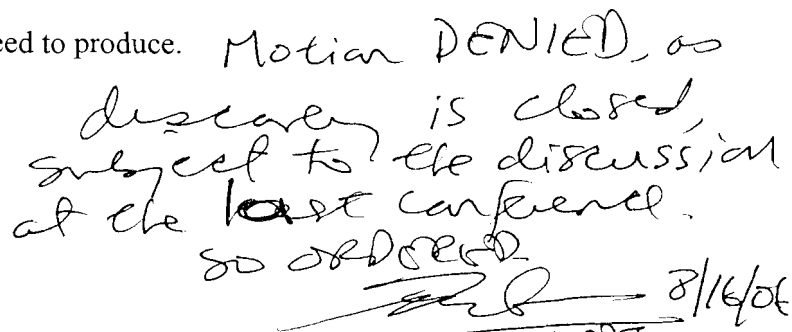 eed to produce. Motion DENIED, as
discovery is closed,
subject to the discussion
at the last conference.
SO ORDERED
8/16/06